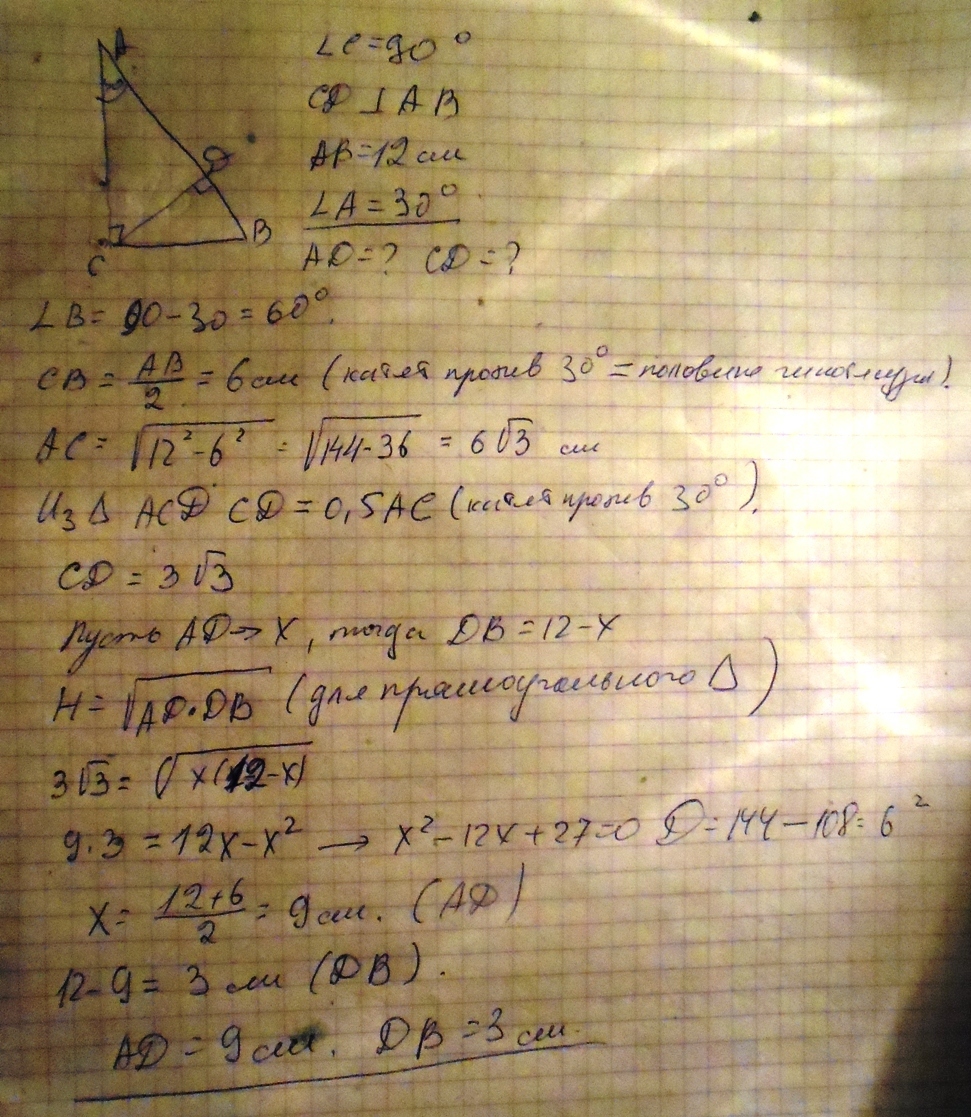 A
D
B
C
∠C=90°
CD ⊥ AB
AB=12см
∠A=30°
AD=? CD=?
∠B= 90-30=60°.
CB = AB/2 = 6см (катет против 30° = половине гипотенузы).
AC= √12²-6² = √144-36 = 6√3 см
Из Δ ACD CD=0,5AC (катет против 30°).
CD = 3√3
Пусть AD→X, тогда DB=12-X
H= √AD·DB (для прямоугольного Δ)
3√3= √x(12-x)
9·3 = 12x-x² → x²-12x+27=0 D=144-108=6²
X= 12+6/2 = 9см. (AD)
12-9= 3 см (DB).
AD = 9см. DB=3см.